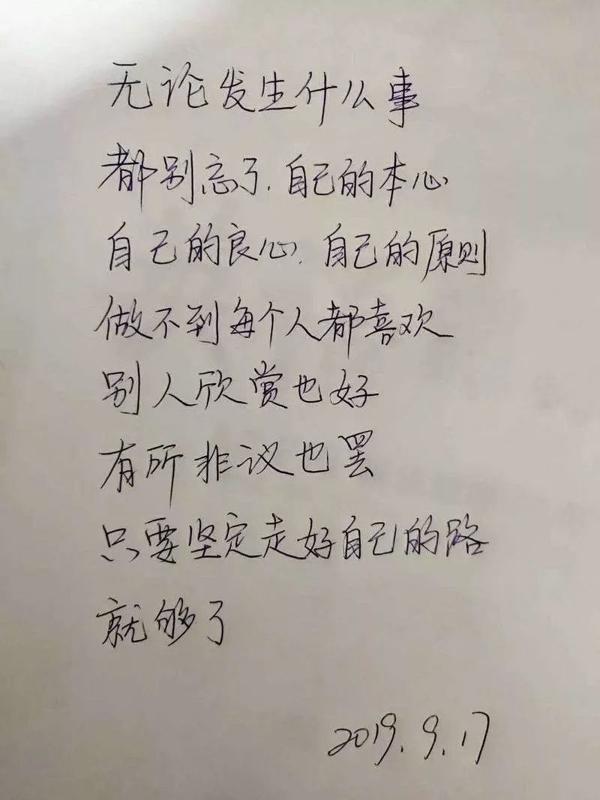 无论发生什么事
都别忘了.自己的本心
自己的良心.自己的原则
做不到每个人都喜欢
别人欣赏也好
有所非议也罢
只要坚定走好自己的路
就够了
2019.9.17